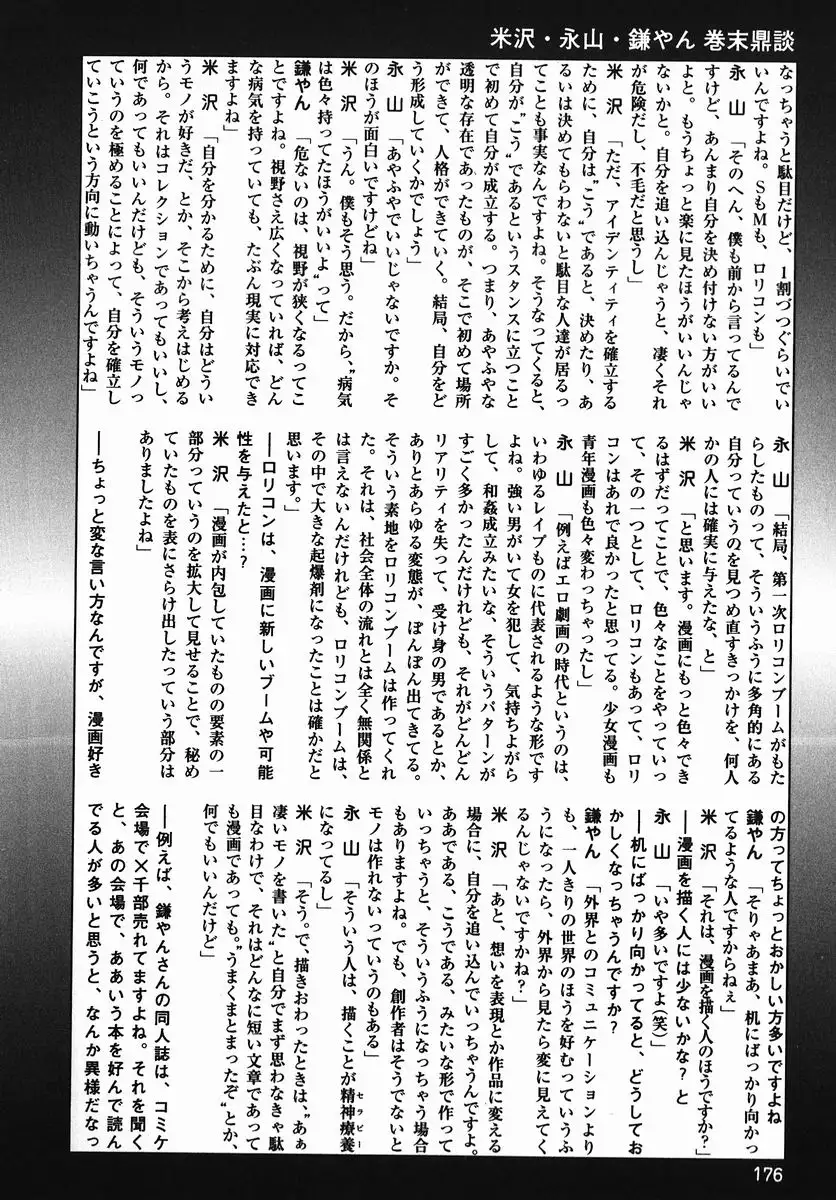 米沢・永山・鎌やん 巻末鼎談
なっちゃうと駄目だけど、1割づつぐらいでい
いんですよね。SもMも、ロリコンも」
永　山　「そのへん、僕も前から言ってるんで
すけど、あんまり自分を決め付けない方がいい
よと。もうちょっと楽に見たほうがいいんじゃ
ないかと。自分を追い込んじゃうと、凄くそれ
が危険だし、不毛だと思うし」
米　沢　「ただ、アイデンティティを確立する
ために、自分は“こう”であると、決めたり、あ
るいは決めてもらわないと駄目な人達が居るっ
てことも事実なんですよね。そうなってくると、
自分が“こう”であるというスタンスに立つこと
で初めて自分が成立する。つまり、あやふやな
透明な存在であったものが、そこで初めて場所
ができて、人格ができていく。結局、自分をど
う形成していくかでしょう」
永　山　「あやふやでいいじゃないですか。そ
のほうが面白いですけどね」
米　沢　「うん。僕もそう思う。だから、“病気
は色々持ってたほうがいいよ”って」
鎌やん　「危ないのは、視野が狭くなるってこ
とですよね。視野さえ広くなっていれば、どん
な病気を持っていても、たぶん現実に対応でき
ますよね」
米　沢　「自分を分かるために、自分はどうい
うモノが好きだ、とか、そこから考えはじめる
から。それはコレクションであってもいいし、
何であってもいいんだけども、そういうモノっ
ていうのを極めることによって、自分を確立し
ていこうという方向に動いちゃうんですよね」
永　山　「結局、第一次ロリコンブームがもた
らしたものって、そういうふうに多角的にある
自分っていうのを見つめ直すきっかけを、何人
かの人には確実に与えたな、と」
米　沢　「と思います。漫画にもっと色々でき
るはずだってことで、色々なことをやっていっ
て、その一つとして、ロリコンもあって、ロリ
コンはあれで良かったと思ってる。少女漫画も
青年漫画も色々変わっちゃったし」
永　山　「例えばエロ劇画の時代というのは、
いわゆるレイプものに代表されるような形です
よね。強い男がいて女を犯して、気持ちよがら
して、和姦成立みたいな、そういうパターンが
すごく多かったんだけれども、それがどんどん
リアリティを失って、受け身の男であるとか、
ありとあらゆる変態が、ぽんぽん出てきてる。
そういう素地をロリコンブームは作ってくれ
た。それは、社会全体の流れとは全く無関係と
は言えないんだけれども、ロリコンブームは、
その中で大きな起爆剤になったことは確かだと
思います。」
──ロリコンは、漫画に新しいブームや可能
性を与えたと…?
米　沢　「漫画が内包していたものの要素の一
部分っていうのを拡大して見せることで、秘め
ていたものを表にさらけ出したっていう部分は
ありましたよね」
──ちょっと変な言い方なんですが、漫画好き
の方ってちょっとおかしい方多いですよね
鎌やん　「そりゃあまあ、机にばっかり向かっ
てるような人ですからねぇ」
米　沢　「それは、漫画を描く人のほうですか?」
──漫画を描く人には少ないかな? と
永　山　「いや多いですよ(笑)」
──机にばっかり向かってると、どうしてお
かしくなっちゃうんですか?
鎌やん　「外界とのコミュニケーションより
も、一人きりの世界のほうを好むっていうふ
うになったら、外界から見たら変に見えてく
るんじゃないですかね?」
米　沢　「あと、想いを表現とか作品に変える
場合に、自分を追い込んでいっちゃうんですよ。
ああである、こうである、みたいな形で作って
いっちゃうと、そういうふうになっちゃう場合
もありますよね。でも、創作者はそうでないと
モノは作れないっていうのもある」
永　山　「そういう人は、描くことが精神療養(セラピー)
になってるし」
米　沢　「そう。で、描きおわったときは、“あぁ
凄いモノを書いた”と自分でまず思わなきゃ駄
目なわけで、それはどんなに短い文章であって
も漫画であっても。“うまくまとまったぞ”とか、
何でもいいんだけど」
──例えば、鎌やんさんの同人誌は、コミケ
会場で×千部売れてますよね。それを聞く
と、あの会場で、ああいう本を好んで読ん
でる人が多いと思うと、なんか異様だなっ
176